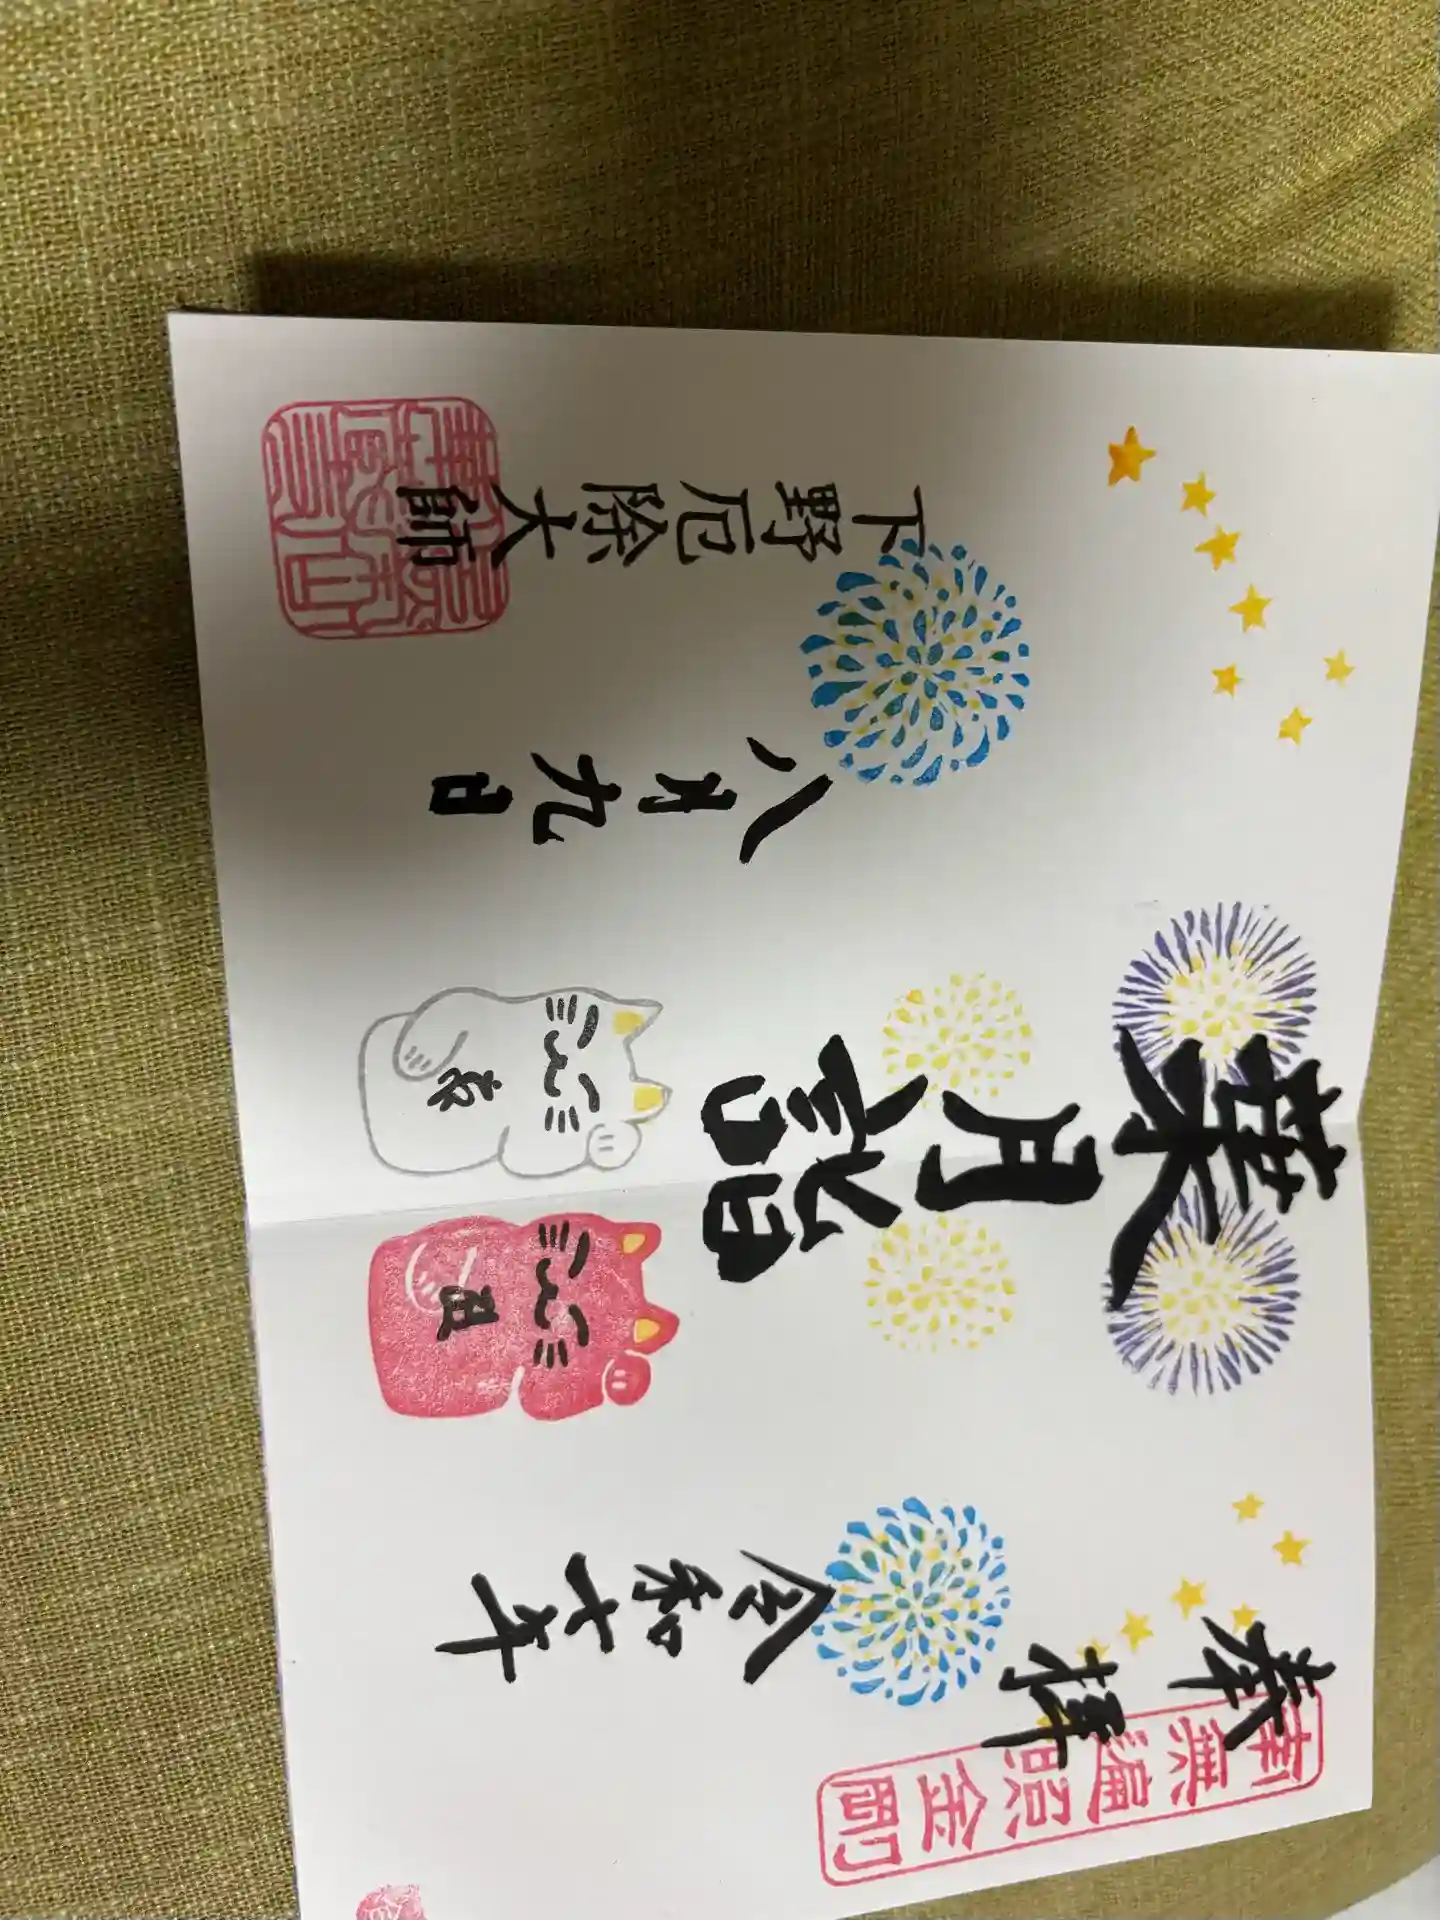 奉拝
南無遍照金剛
令和七年
葉月詣
八月九日
下野厄除大師